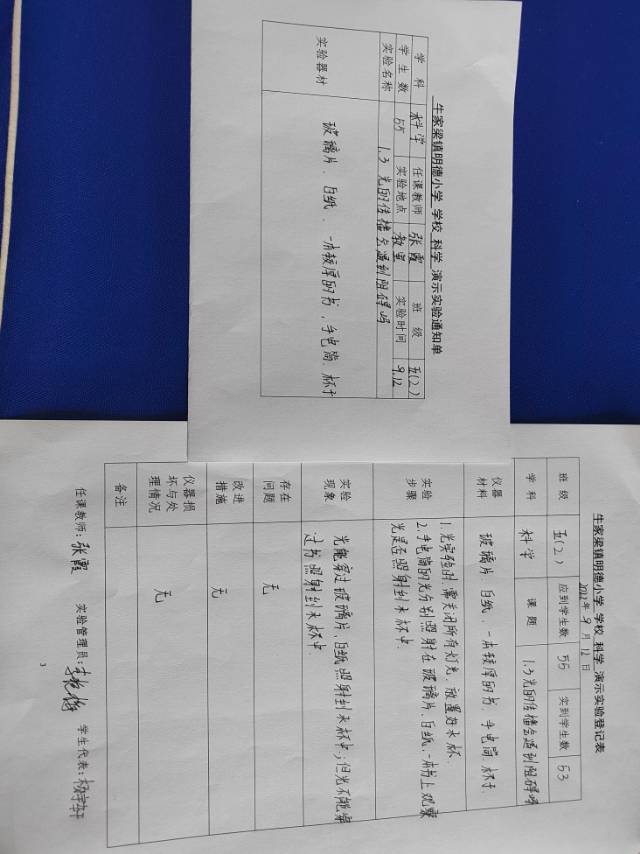 牛家梁镇明德小学 学校 科学 演示实验通知单
学科 科学 任课教师 张霞 班级 五(2)
学生数 55 实验地点 教室 实验时间 9.12
实验名称 1.3 光的传播会遇到阻碍吗
实验器材 玻璃片、白纸、一本较厚的书、手电筒、杯子
牛家梁镇明德小学 学校 科学 演示实验登记表
2022年 9 月 12 日
班级 五(2) 应到学生数 55 实到学生数 53
学科 科学 课题 1.3光的传播会遇到阻碍吗
仪器材料 玻璃片、白纸、一本较厚的书、手电筒、杯子
实验步骤 1.光实验时,需关闭所有灯光,放置好水杯、
2.手电筒的光分别照射在玻璃片、白纸、一本书上观察
光是否照射到水杯中.
实验现象 光能穿过玻璃片、白纸照射到水杯中;但光不能穿
过书照射到水杯中.
存在问题 无
改进措施 无
仪器损坏与处理情况 无
备注
任课教师:张霞 实验管理员: 学生代表: